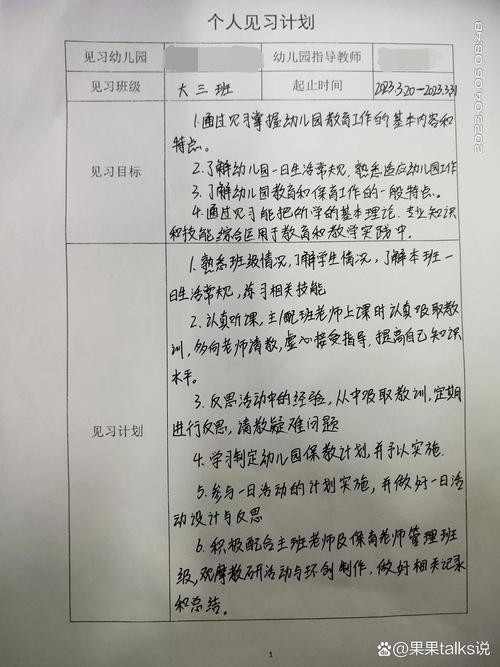 个人见习计划
见习幼儿园 幼儿园指导教师
见习班级 大三班 起止时间 2023.3.20-2023.3.31
见习目标
1.通过见习掌握幼儿园教育工作的基本内容和
特点。
2.了解幼儿园一日生活常规,熟悉适应幼儿园工作
3.了解幼儿园教育和保育工作的一般特点。
4.通过见习能把所学的基本理论.专业知识
和技能综合运用于教育和教学实践中.
见习计划
1.熟悉班级情况,了解学生情况,了解本班一
日生活常规,练习相关技能
2.认真听课,主/配班老师上课时认真吸取教
训,多向老师请教,虚心接受指导,提高自己知识
水平。
3.反思活动中的经验,从中吸取教训,定期
进行反思,请教疑难问题
4.学习制定幼儿园保教计划,并予以实施.
5.参与一日活动的计划实施,并做好一日活
动设计与反思
6.积极配合主班老师及保育老师管理班
级,观摩教研活动与环创制作.做好相关记录
和总结。
1
2025/04/06 08:48
@果果talks说